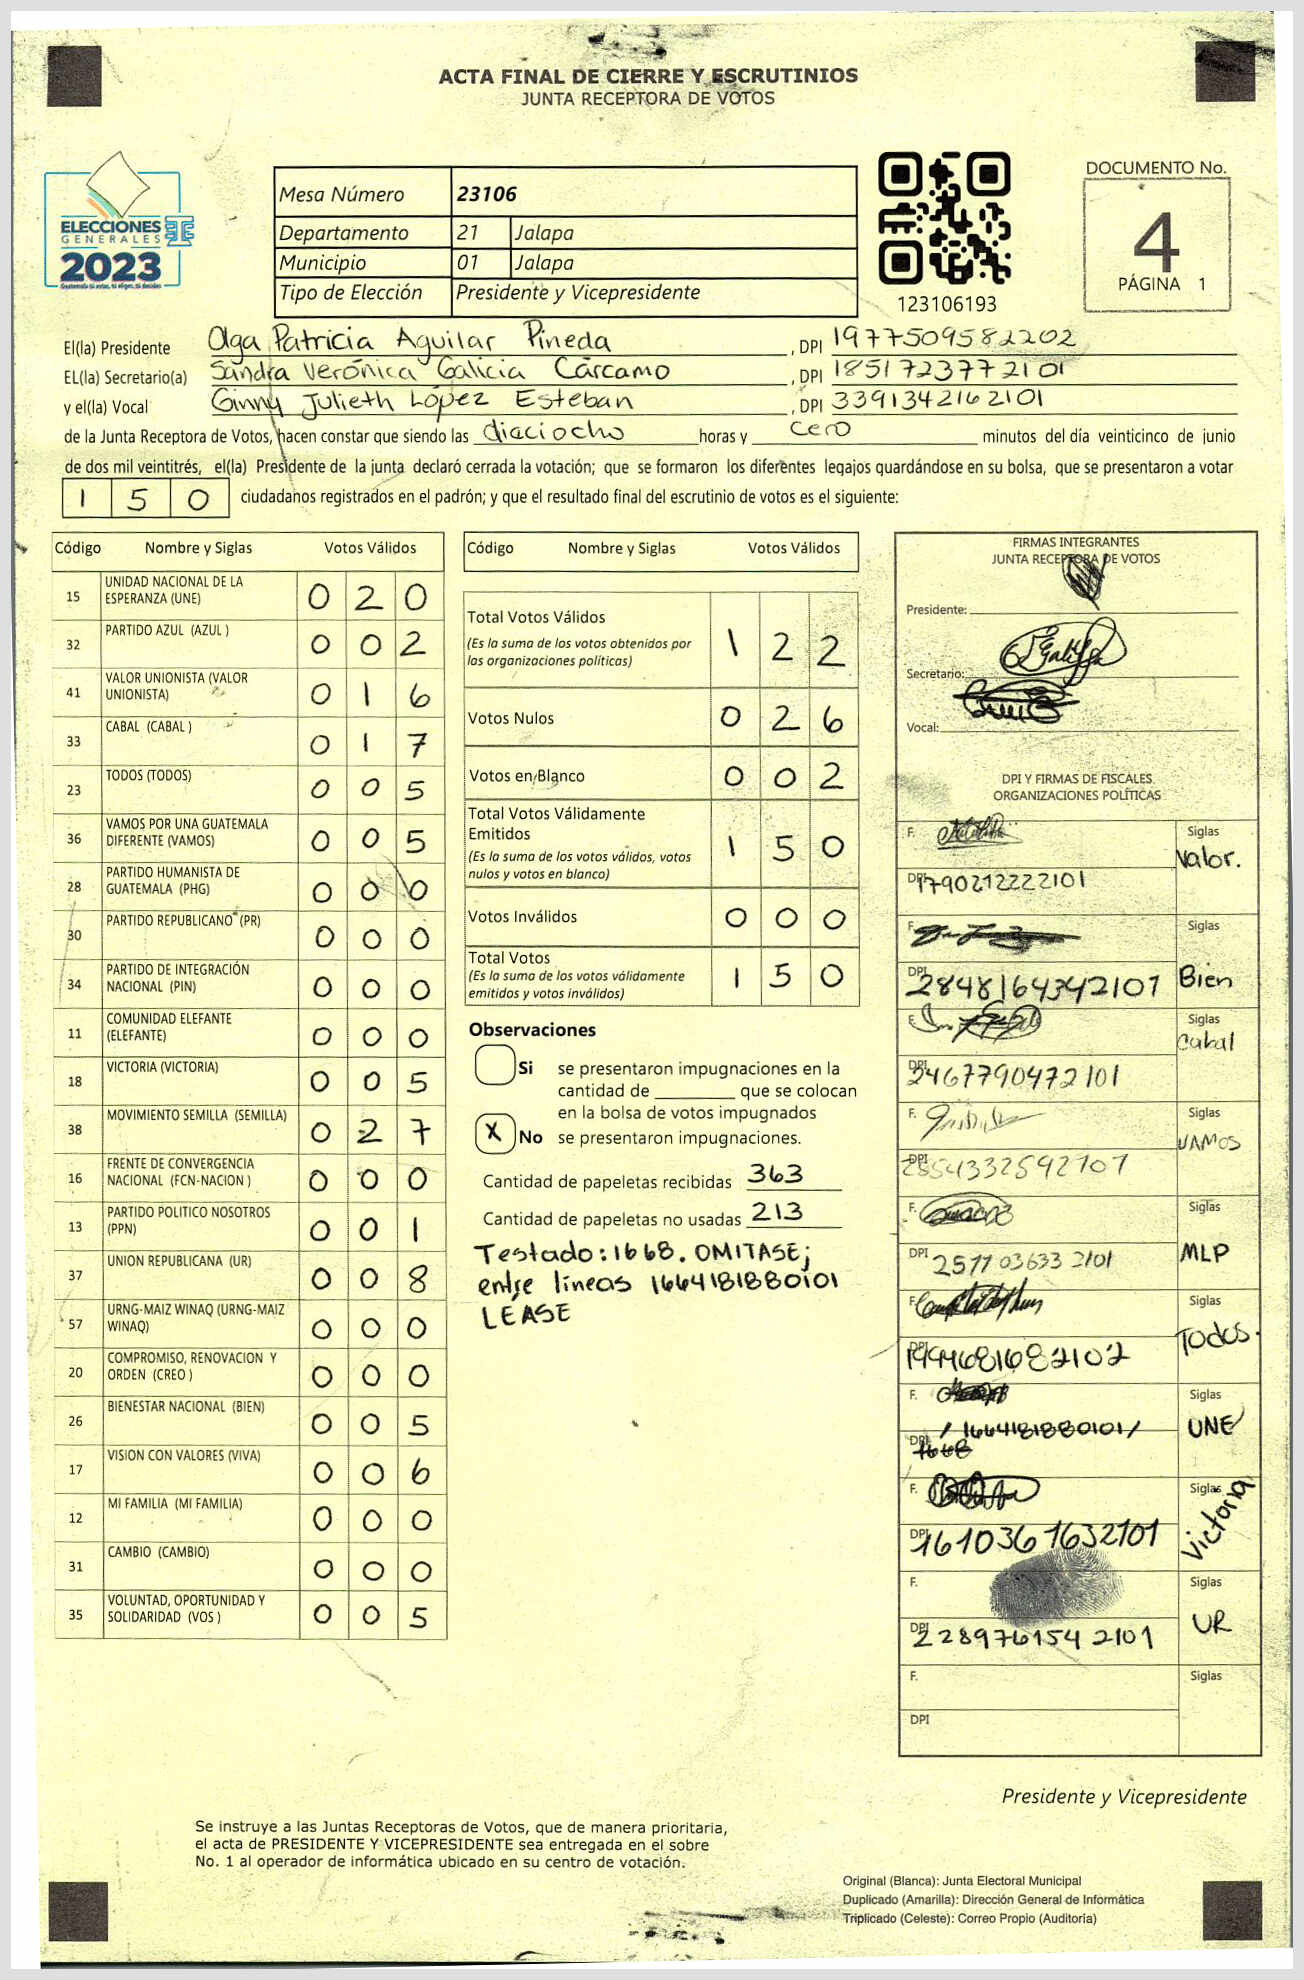 ACTA FINAL DE CIERRE Y ESCRUTINIOS
JUNTA RECEPTORA DE VOTOS
ELECCIONES
GENERALES
2023
Guatemala tú votas, tú eliges, tú decides
Mesa Número 23106
Departamento 21 Jalapa
Municipio 01 Jalapa
Tipo de Elección Presidente y Vicepresidente
123106193
DOCUMENTO No.
4
PÁGINA 1
El(la) Presidente Olga Patricia Aguilar Pineda, DPI 1977509582202
EL(la) Secretario(a) Sandra Verónica Galicia Cárcamo, DPI 1851723772101
y el(la) Vocal Ginny Julieth López Esteban, DPI 3391342162101
de la Junta Receptora de Votos, hacen constar que siendo las diaciocho horas y cero minutos del día veinticinco de junio
de dos mil veintitrés, el(la) Presidente de la junta declaró cerrada la votación; que se formaron los diferentes legajos guardándose en su bolsa, que se presentaron a votar
1 5 0 ciudadanos registrados en el padrón; y que el resultado final del escrutinio de votos es el siguiente:
Código Nombre y Siglas Votos Válidos
15 UNIDAD NACIONAL DE LA ESPERANZA (UNE) 0 2 0
32 PARTIDO AZUL (AZUL ) 0 0 2
41 VALOR UNIONISTA (VALOR UNIONISTA) 0 1 6
33 CABAL (CABAL ) 0 1 7
23 TODOS (TODOS) 0 0 5
36 VAMOS POR UNA GUATEMALA DIFERENTE (VAMOS) 0 0 5
28 PARTIDO HUMANISTA DE GUATEMALA (PHG) 0 0 0
30 PARTIDO REPUBLICANO (PR) 0 0 0
34 PARTIDO DE INTEGRACIÓN NACIONAL (PIN) 0 0 0
11 COMUNIDAD ELEFANTE (ELEFANTE) 0 0 0
18 VICTORIA (VICTORIA) 0 0 5
38 MOVIMIENTO SEMILLA (SEMILLA) 0 2 7
16 FRENTE DE CONVERGENCIA NACIONAL (FCN-NACION ) 0 0 0
13 PARTIDO POLITICO NOSOTROS (PPN) 0 0 1
37 UNION REPUBLICANA (UR) 0 0 8
57 URNG-MAIZ WINAQ (URNG-MAIZ WINAQ) 0 0 0
20 COMPROMISO, RENOVACION Y ORDEN (CREO ) 0 0 0
26 BIENESTAR NACIONAL (BIEN) 0 0 5
17 VISION CON VALORES (VIVA) 0 0 6
12 MI FAMILIA (MI FAMILIA) 0 0 0
31 CAMBIO (CAMBIO) 0 0 0
35 VOLUNTAD, OPORTUNIDAD Y SOLIDARIDAD (VOS ) 0 0 5
Código Nombre y Siglas Votos Válidos
Total Votos Válidos 1 2 2
(Es la suma de los votos obtenidos por
las organizaciones políticas)
Votos Nulos 0 2 6
Votos en Blanco 0 0 2
Total Votos Válidamente
Emitidos 1 5 0
(Es la suma de los votos válidos, votos
nulos y votos en blanco)
Votos Inválidos 0 0 0
Total Votos 1 5 0
(Es la suma de los votos válidamente
emitidos y votos inválidos)
Observaciones
Si se presentaron impugnaciones en la
cantidad de ________ que se colocan
en la bolsa de votos impugnados
X No se presentaron impugnaciones.
Cantidad de papeletas recibidas 363
Cantidad de papeletas no usadas 213
Testado: 1668. OMITASE;
entre líneas 1664181880101
LÉASE
FIRMAS INTEGRANTES
JUNTA RECEPTORA DE VOTOS
Presidente:
Secretario:
Vocal:
DPI Y FIRMAS DE FISCALES
ORGANIZACIONES POLÍTICAS
F. Siglas Valor.
DPI 1790212222101
F. Siglas Bien
DPI 2848164342101
F. Siglas Cabal
DPI 2467790472101
F. Siglas VAMOS
DPI 2854332592101
F. Siglas MLP
DPI 2577036332101
F. Siglas Todos.
DPI 1994681682102
F. Siglas UNE
/ 1664181880101/
DPI 1668
F. Siglas Victoria
DPI 1610361632101
F. Siglas UR
DPI 2289761542101
F. Siglas
DPI
Presidente y Vicepresidente
Se instruye a las Juntas Receptoras de Votos, que de manera prioritaria,
el acta de PRESIDENTE Y VICEPRESIDENTE sea entregada en el sobre
No. 1 al operador de informática ubicado en su centro de votación.
Original (Blanca): Junta Electoral Municipal
Duplicado (Amarilla): Dirección General de Informática
Triplicado (Celeste): Correo Propio (Auditoría)